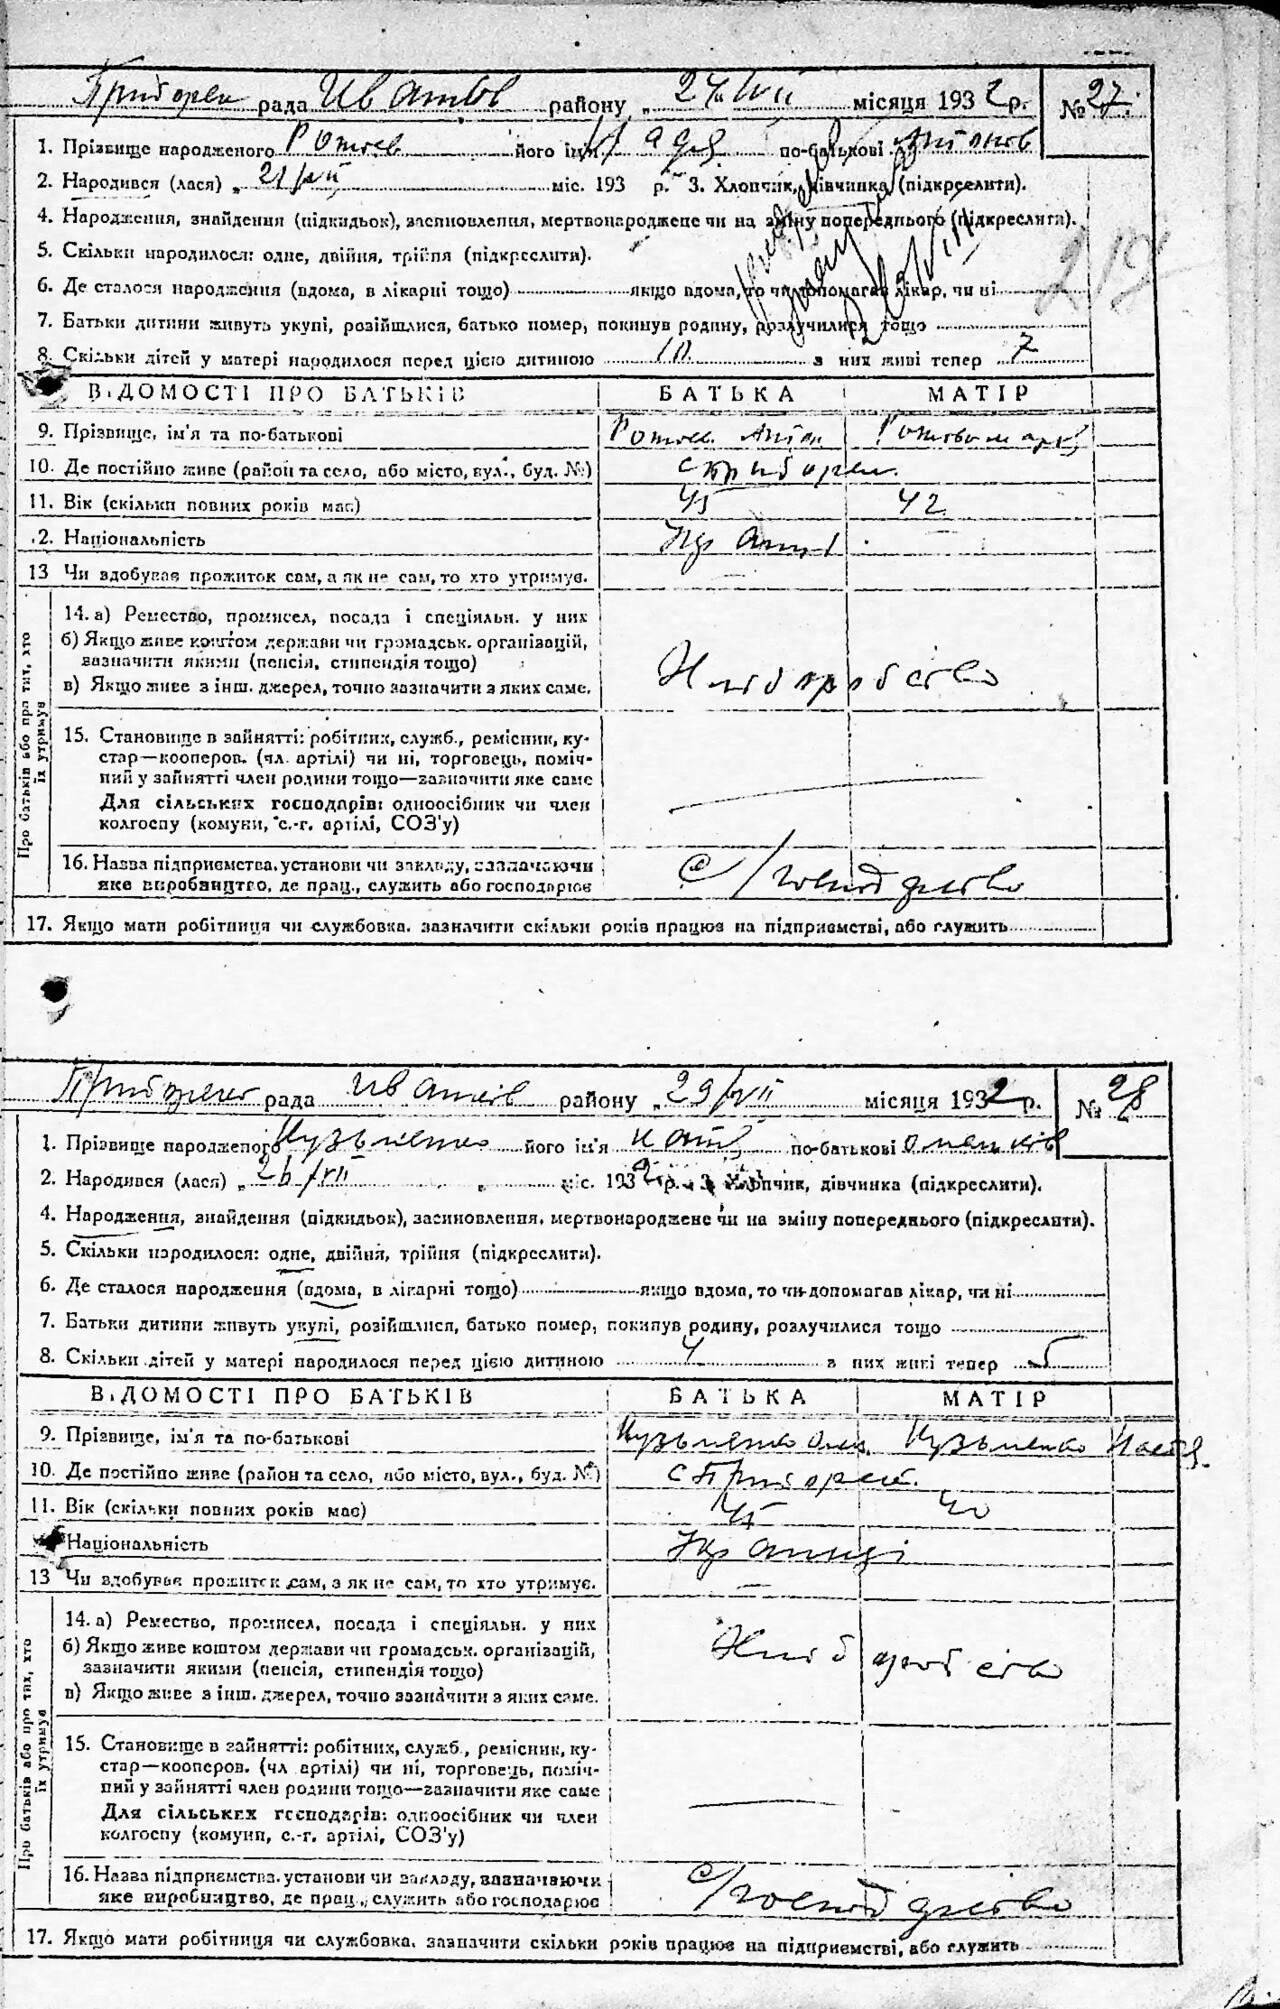 рада Ивашків району 24/VII місяця 1932 р. № 27
1. Прізвище народженого його ім'я по-батькові Антонов
2. Народився (лася) 21/VII міс. 193 р. 3. Хлопчик, дівчинка (підкреслити).
4. Народження, знайдення (підкидьок), засиновлення, мертвонароджене чи на зміну попереднього (підкреслити).
5. Скільки народилося: одне, двійня, трійня (підкреслити).
6. Де сталося народження (вдома, в лікарні тощо) якщо вдома, то чи допомагав лікар, чи ні
7. Батьки дитини живуть укупі, розійшлися, батько помер, покинув родину, розлучилися тощо
8. Скільки дітей у матері народилося перед цією дитиною 10 з них живі тепер 7
ВІДОМОСТІ ПРО БАТЬКІВ БАТЬКА МАТІР
9. Прізвище, ім'я та по-батькові
10. Де постійно живе (район та село, або місто, вул., буд. №)
11. Вік (скільки повних років має) 45 42
12. Національність Українці
13 Чи здобував прожиток сам, а як не сам, то хто утримує.
Про батьків або про тих, хто їх утримує
14. а) Ремество, промисел, посада і спеціяльн. у них
б) Якщо живе коштом держави чи громадськ. організацій,
зазначити якими (пенсія, стипендія тощо)
в) Якщо живе з інш. джерел, точно зазначити з яких саме.
Хліборобство
15. Становище в зайнятті: робітник, служб., ремісник, ку-
стар—кооперов. (чл. артілі) чи ні, торговець, поміч-
ний у зайнятті член родини тощо—зазначити яке саме
Для сільських господарів: одноосібник чи член
колгоспу (комуни, с.-г. артілі, СОЗ'у)
16. Назва підприємства, установи чи закладу, зазначаючи
яке виробництво, де прац., служить або господарює
С/господарство
17. Якщо мати робітниця чи службовка, зазначити скільки років працює на підприємстві, або служить
рада Ивашків району 29/VII місяця 1932 р. № 28
1. Прізвище народженого Кузьменко його ім'я Катя по-батькові
2. Народився (лася) 26/VII міс. 1932 р. 3. Хлопчик, дівчинка (підкреслити).
4. Народження, знайдення (підкидьок), засиновлення, мертвонароджене чи на зміну попереднього (підкреслити).
5. Скільки народилося: одне, двійня, трійня (підкреслити).
6. Де сталося народження (вдома, в лікарні тощо) якщо вдома, то чи допомагав лікар, чи ні
7. Батьки дитини живуть укупі, розійшлися, батько помер, покинув родину, розлучилися тощо
8. Скільки дітей у матері народилося перед цією дитиною 4 з них живі тепер 5
ВІДОМОСТІ ПРО БАТЬКІВ БАТЬКА МАТІР
9. Прізвище, ім'я та по-батькові Кузьменко Кузьменко Настя
10. Де постійно живе (район та село, або місто, вул., буд. №)
11. Вік (скільки повних років має) 45 40
Національність Українці
13 Чи здобував прожиток сам, а як не сам, то хто утримує. —
Про батьків або про тих, хто їх утримує
14. а) Ремество, промисел, посада і спеціяльн. у них
б) Якщо живе коштом держави чи громадськ. організацій,
зазначити якими (пенсія, стипендія тощо)
в) Якщо живе з інш. джерел, точно зазначити з яких саме.
Хліборобство
15. Становище в зайнятті: робітник, служб., ремісник, ку-
стар—кооперов. (чл. артілі) чи ні, торговець, поміч-
ний у зайнятті член родини тощо—зазначити яке саме
Для сільських господарів: одноосібник чи член
колгоспу (комуни, с.-г. артілі, СОЗ'у)
16. Назва підприємства, установи чи закладу, зазначаючи
яке виробництво, де прац., служить або господарює
С/господарство
17. Якщо мати робітниця чи службовка, зазначити скільки років працює на підприємстві, або служить